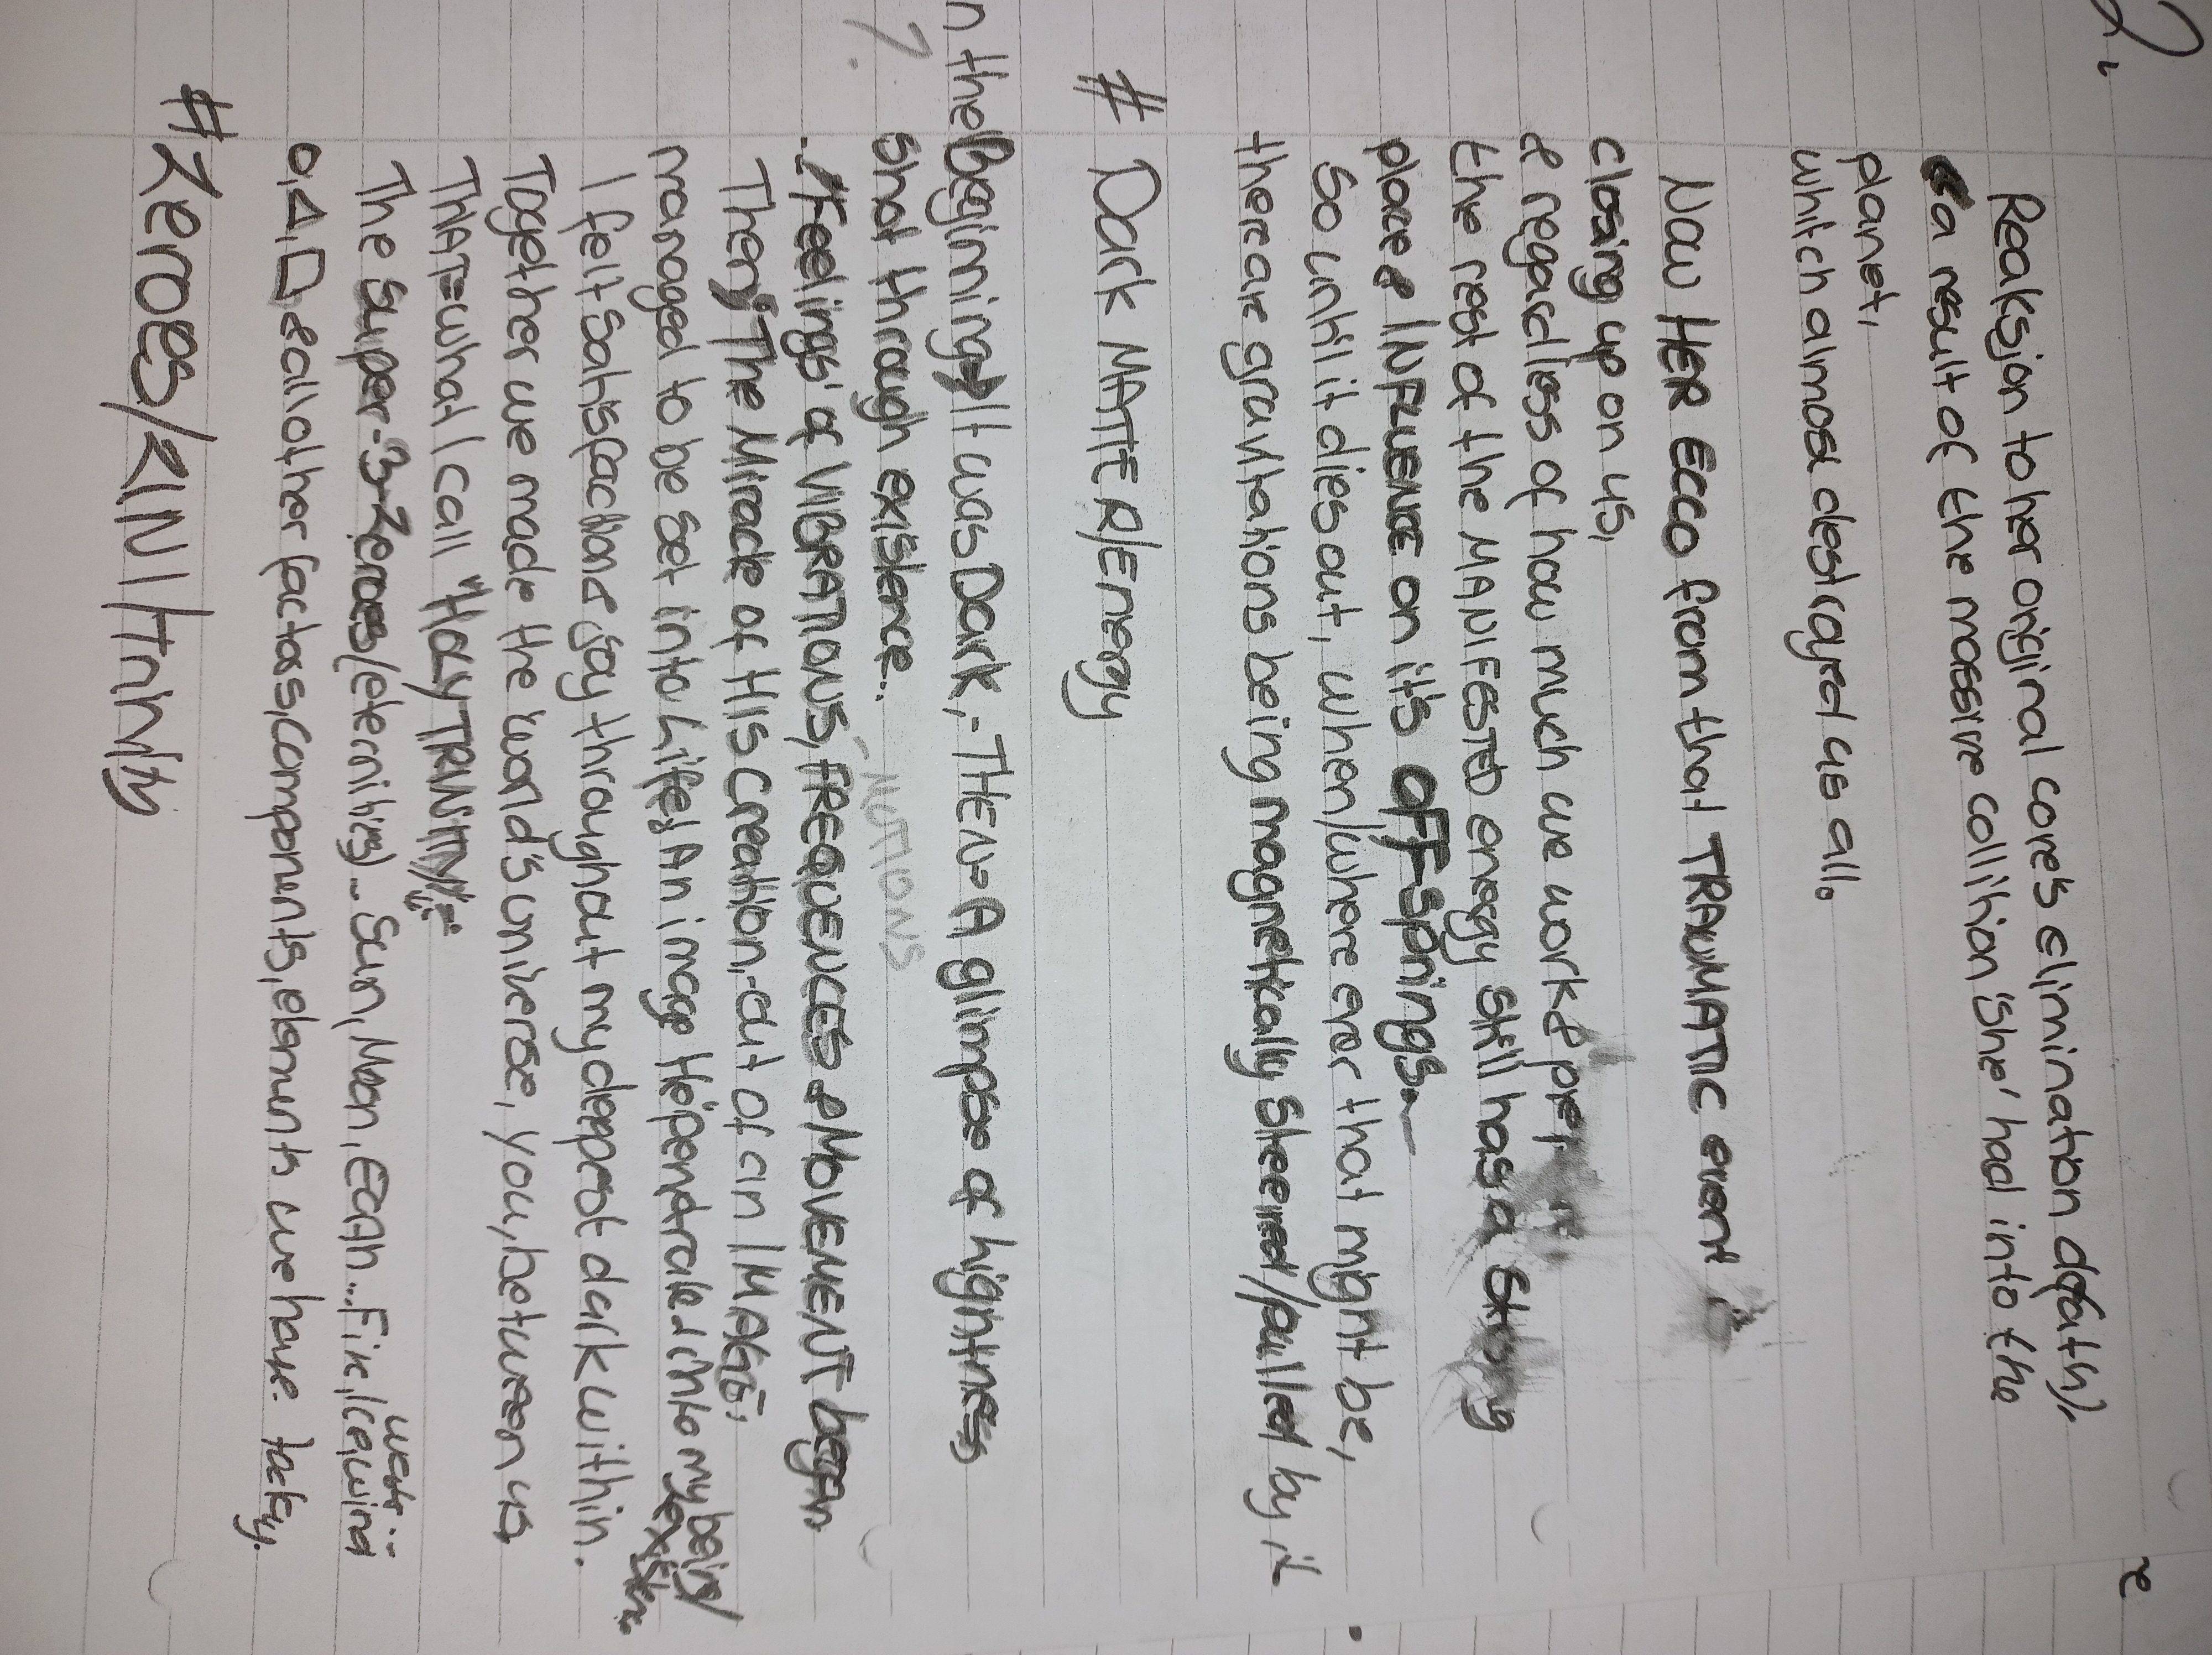 2.
Reaksjon to her original core's elimination death),
a result of the massive collition 'she' had into the
planet,
whitch almost destrayed us all.
Now HER Ecco from that TRAUMATIC event
closing up on us,
& regardless of how much we work & pei
the rest of the MANIFESTED enegy still has a strong
place & INFLUENCE on it's OFF-springs.
So until it dies out, when/where ever that might be,
there are gravitations being magnetically steered/pulled by it
# Dark MATTER/Enegy
n the Beginning It was Dark,- THEN A glimpse of lightness
? shot through existence...
MOTIONS
..."Feelings' of VIBRATIONS, FREQUENCES & MOVEMENT began
Then; The Miracle of HIS creation,-out of an IMAGE,
managed to be set into Life; An image He pendtrated into my being/
I felt satisfaction & joy throughout my deepest dark within.
Together we made the world's universe, you, between us
THAT=what I call "HOLY TRINITY"
The super-3-Zeroes/(eternities)... Sun, Moon, EarH... Fire, Ice, wind
water...
O, Δ, □ & all other factos, components, elements we have today.
# Zeroes/KINI trinity